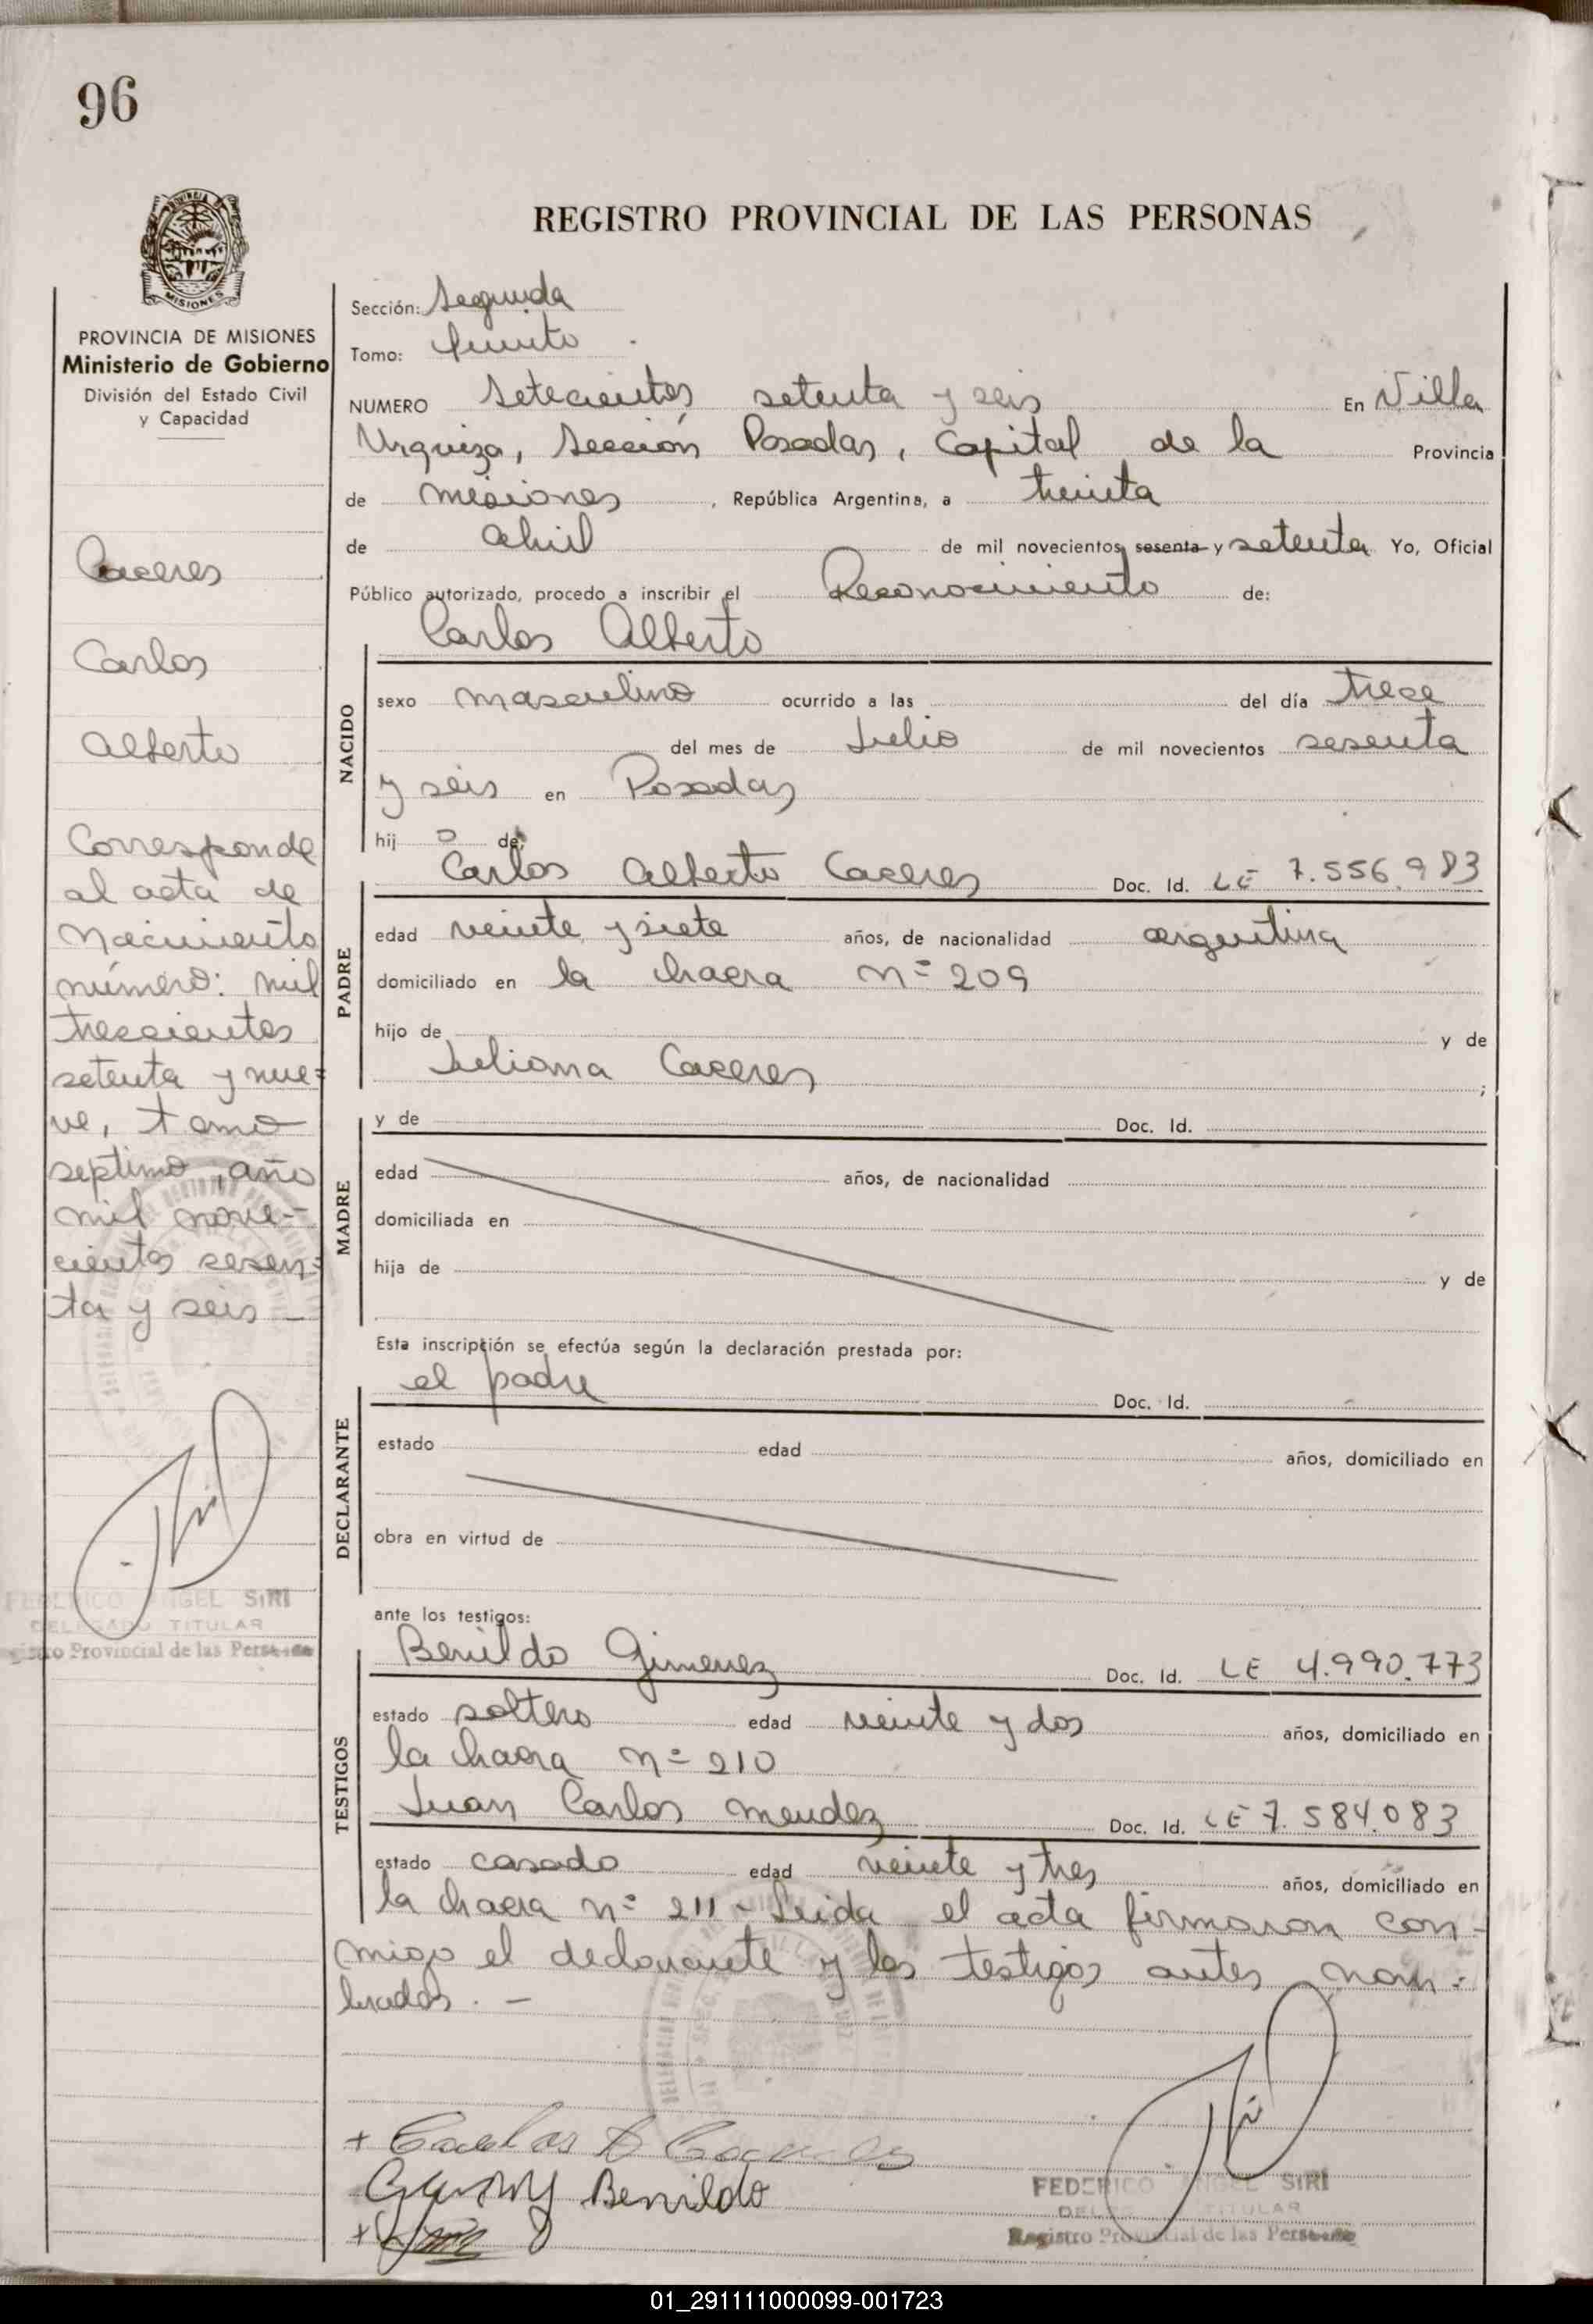 96
REGISTRO PROVINCIAL DE LAS PERSONAS
MISIONES
PROVINCIA DE MISIONES
Ministerio de Gobierno
División del Estado Civil
y Capacidad
Caceres
Carlos
Alberto
Corresponde
al acta de
Nacimiento
número: mil
trescientos
setenta y nue=
ve, tomo
septimo, año
mil nove-
cientos sesen=
ta y seis -
FEDERICO ANGEL SIRI
DELEGADO TITULAR
Registro Provincial de las Personas
Sección: Segunda
Tomo: Quinto
NUMERO Setecientos setenta y seis En Villa
Urquiza, Sección Posadas, Capital de la Provincia
de Misiones, República Argentina, a treinta
de Abril de mil novecientos sesenta y setenta Yo, Oficial
Público autorizado, procedo a inscribir el Reconocimiento de:
Carlos Alberto
NACIDO
sexo masculino ocurrido a las del día trece
del mes de Julio de mil novecientos sesenta
y seis en Posadas
hijo de
Carlos Alberto Caceres Doc. Id. LE 7.556.983
PADRE
edad veinte y siete años, de nacionalidad argentina
domiciliado en la chacra nº 209
hijo de y de
Juliana Caceres ;
MADRE
y de Doc. Id.
edad años, de nacionalidad
domiciliada en
hija de y de
Esta inscripción se efectúa según la declaración prestada por:
el padre Doc. Id.
DECLARANTE
estado edad años, domiciliado en
obra en virtud de
ante los testigos:
Benildo Gimenez Doc. Id. LE 4.990.773
TESTIGOS
estado soltero edad veinte y dos años, domiciliado en
la chacra nº 210
Juan Carlos Mendez Doc. Id. LE 7.584.083
estado casado edad veinte y tres años, domiciliado en
la chacra nº 211 - Leida el acta firmaron con-
migo el declarante y los testigos antes nom=
brados. -
+ Carlos A Caceres
Benildo
FEDERICO ANGEL SIRI
DELEGADO TITULAR
Registro Provincial de las Personas
01_291111000099-001723